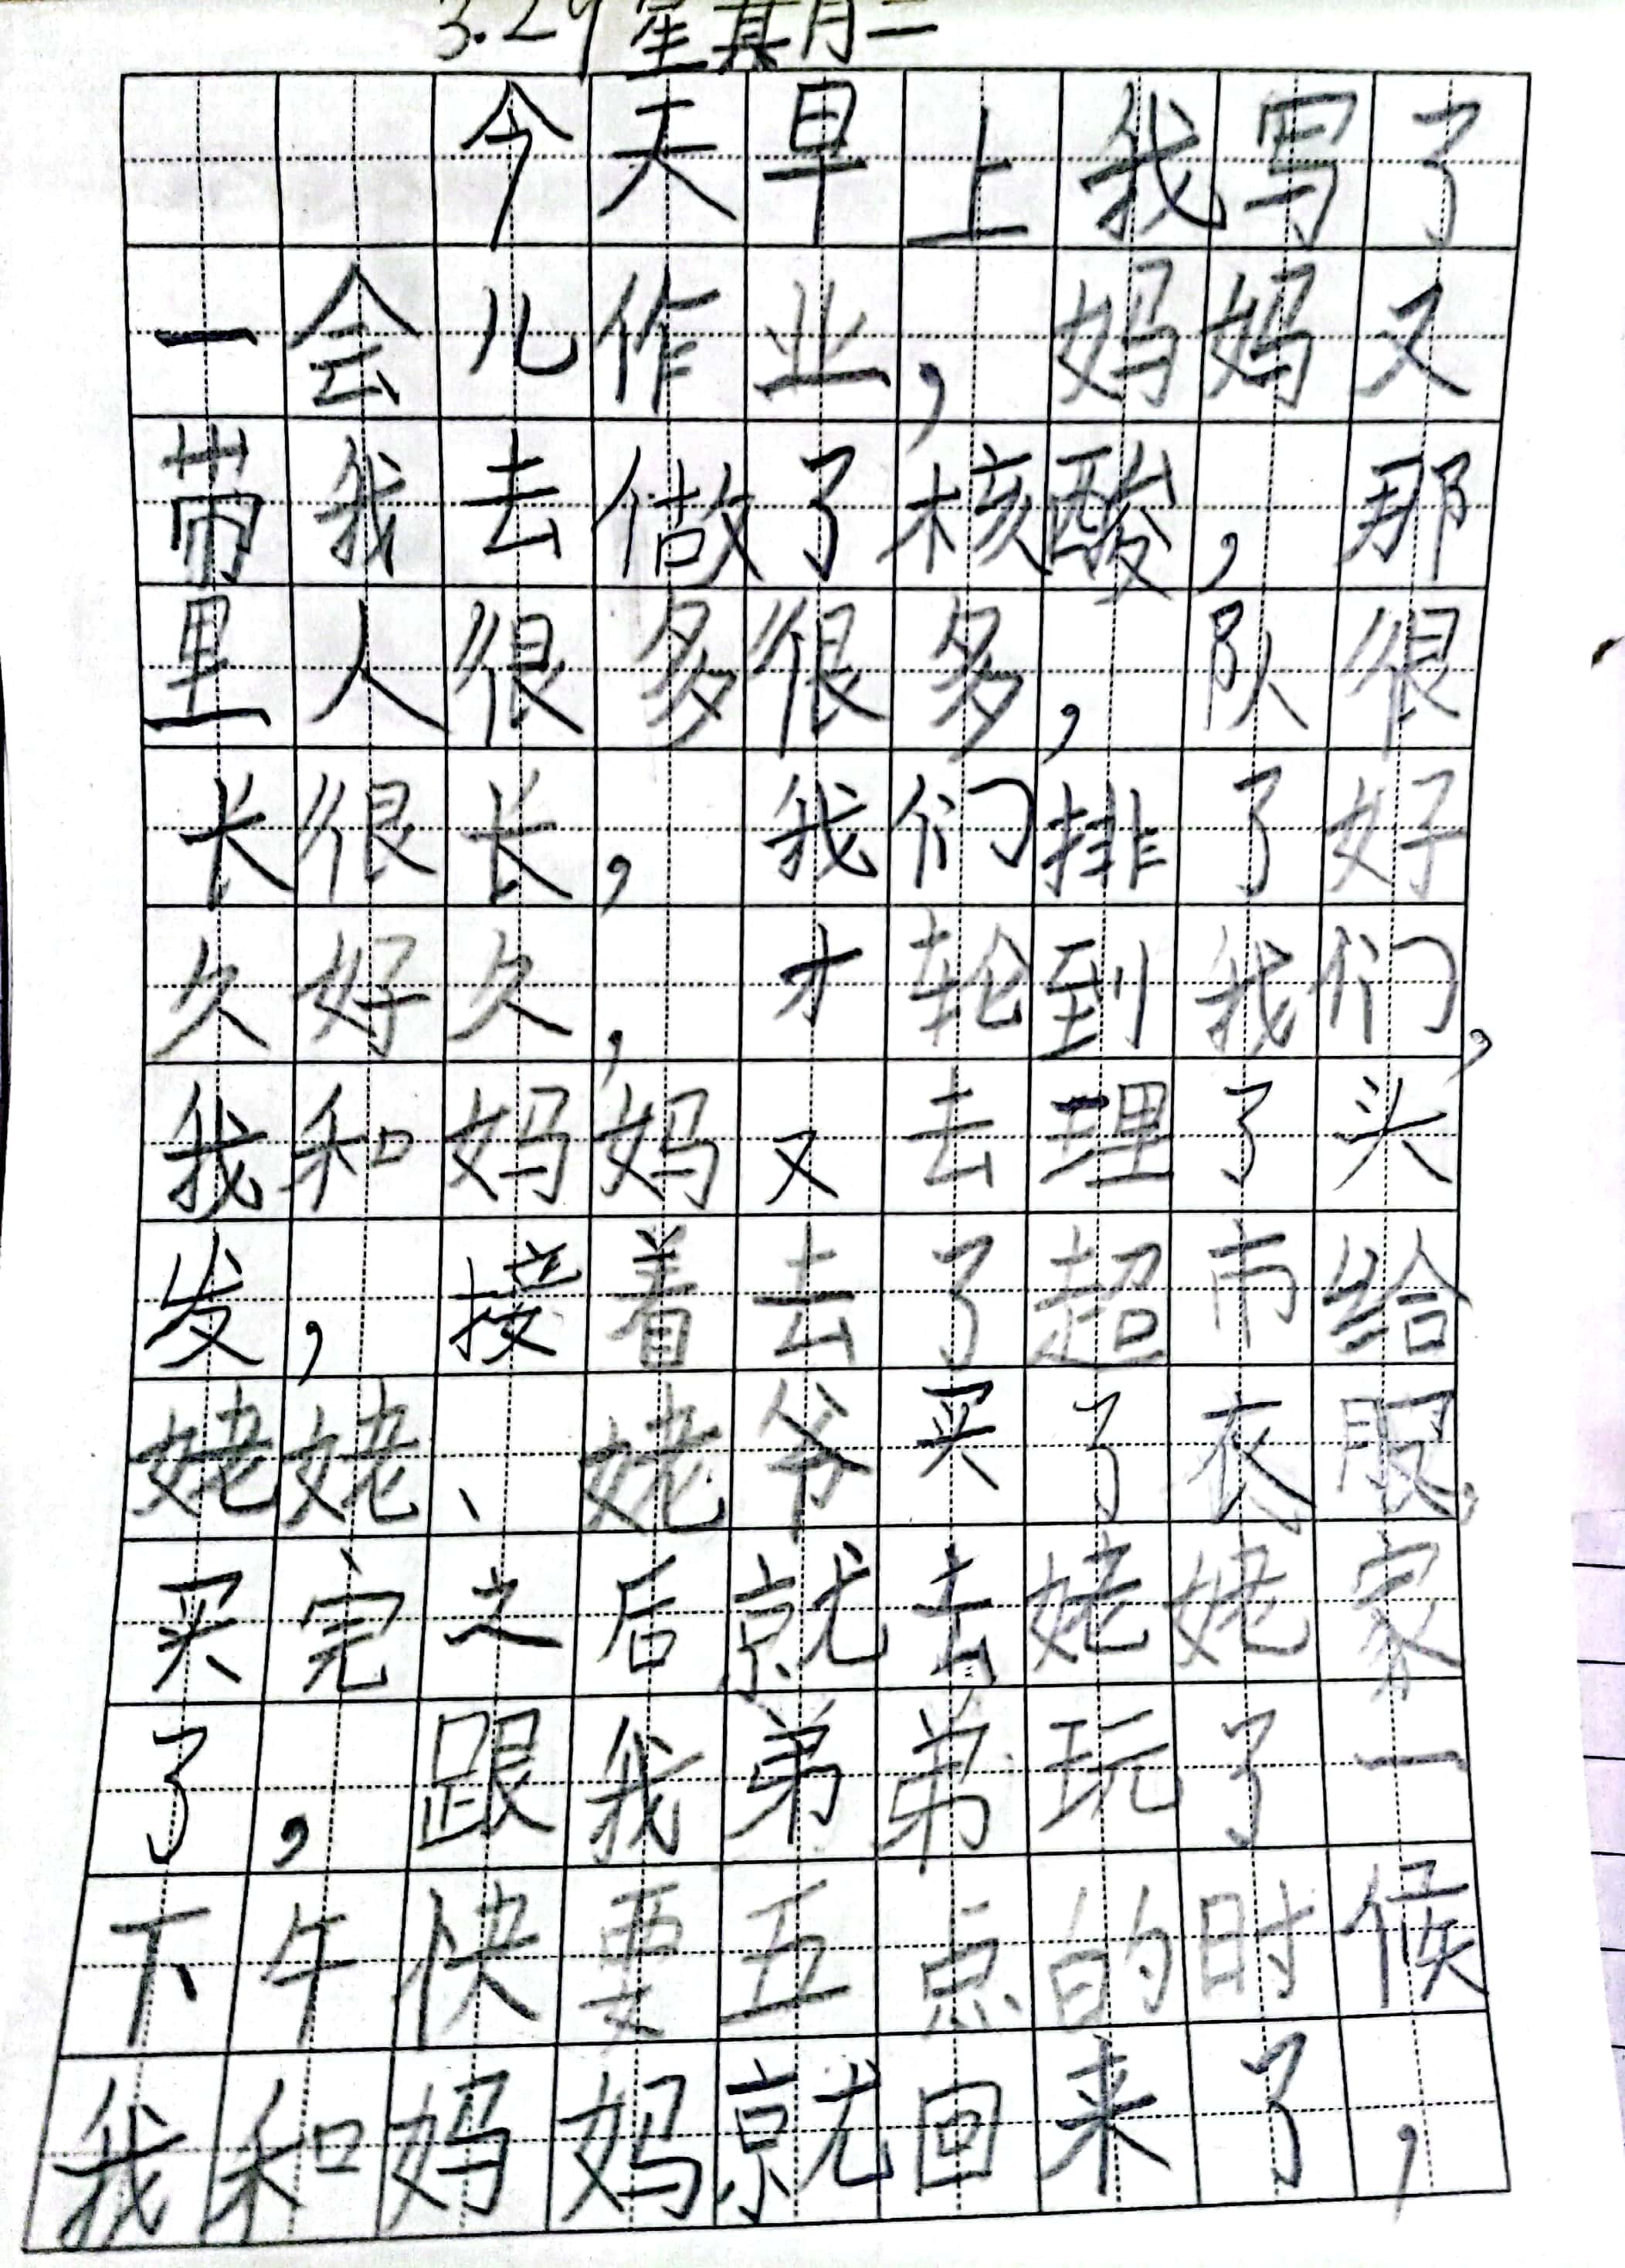 3.29 星期二
今天早上我写了
一会儿作业，妈妈又
带我去做了核酸，那
里人很多很多，队很
长很长，我们排了好
久好久，才轮到我们，
我和妈妈又去理了头
发，接着去了超市给
姥姥、姥爷买了衣服，
买完之后就去姥姥家
了，跟我弟弟玩了一
下午快要五点的时候
我和妈妈就回来了，